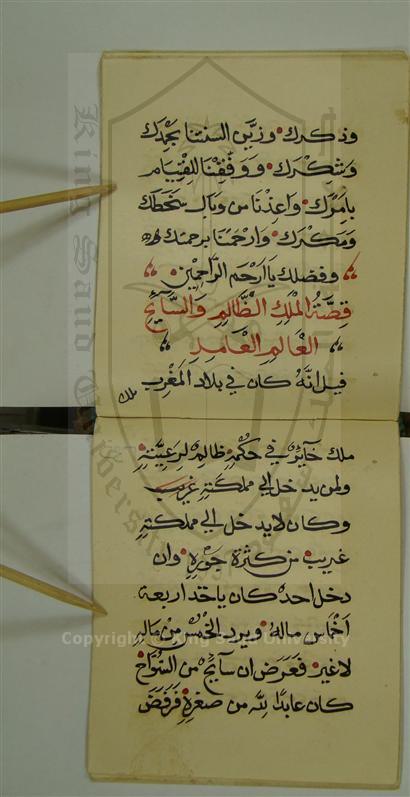 وذكرك وزين السنتنا بحمدك
وشكرك ووفقنا للقيام
بامرك واعذنا من وبال سخطك
ومكرك وارحمنا برحمتك
وفضلك يا ارحم الراحمين
قصة الملك الظالم والسايح
العالم العامد
قيل انه كان في بلاد المغرب
ملك
ملك جاير في حكمه ظالم لرعيته
ولمن يدخل الي مملكته غريب
وكان لا يدخل الي مملكته
غريب من كثرة جوره وان
دخل احد كان ياخد اربعة
اخماس ماله ويرد الخمس من ماله
لا غير فعرض ان سايح من السواح
كان عابدا لله من صغره فرفض
Copyright © King Saud University
King Saud University